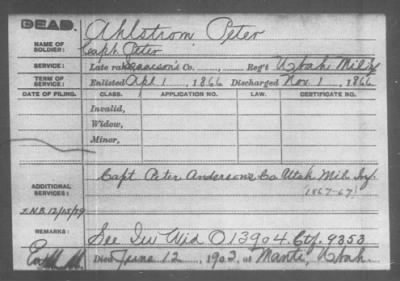 DEAD.
Ahlstrom Peter
NAME OF SOLDIER:
Capt. Peter
SERVICE: Late rank Isaacson's Co., Reg't Utah Mil Inf
TERM OF SERVICE: Enlisted Apl 1, 1866 Discharged Nov. 1, 1866
DATE OF FILING. CLASS. APPLICATION NO. LAW. CERTIFICATE NO.
Invalid,
Widow,
Minor,
Capt Peter Anderson's Co Utah Mil Inf.
ADDITIONAL SERVICES: 1867-67
J.N.B. 12/15/79
REMARKS: See Inv Wid O 13904. Ctf. 9353
Died June 12, 1902, at Manti, Utah.